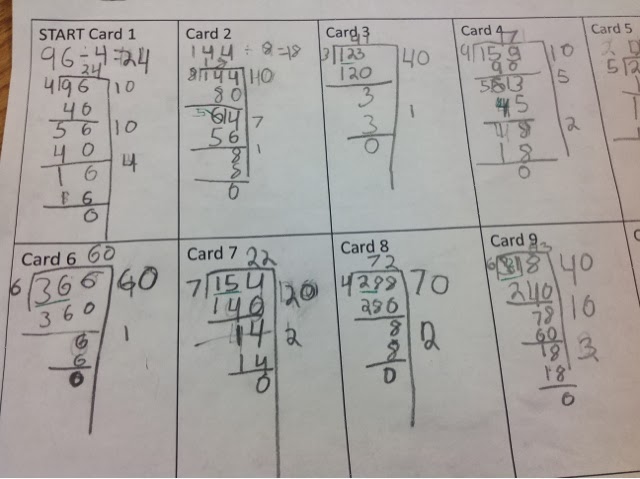 START Card 1
96 ÷ 4 = 24
24
4 96 10
40
56 10
40
16 4
16
0
Card 2
144 ÷ 8 = 18
18
8 144 10
80
64 7
56
8 1
8
0
Card 3
41
3 123 40
120
3
3 1
0
Card 4
47
9 159 10
98
5
45
48 2
18
0
Card 5
5 2
Card 6 60
6 366 60
360
6 1
6
0
Card 7 22
7 154 20
140
14 2
14
0
Card 8
72
4 288 70
280
8 2
8
0
Card 9
53
6 318 40
240
78 10
60
18 3
18
0